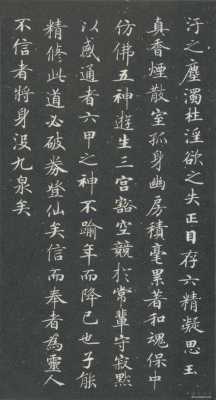 汙之塵濁杜淫欲之失正目存六精凝思玉
真香煙散室孤身幽房積毫累著和魂保中
仿佛五神遊生三宮豁空競於常輩守寂默
以感通者六甲之神不踰年而降已也子能
精修此道必破券登仙矣信而奉者為靈人
不信者將身沒九泉矣